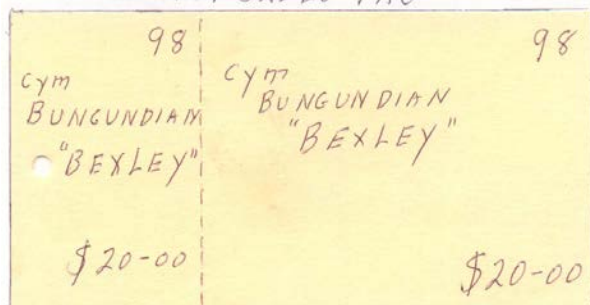 98
Cym
BUNGUNDIAN
"BEXLEY"
$20-00
98
Cym
BUNGUNDIAN
"BEXLEY"
$20-00